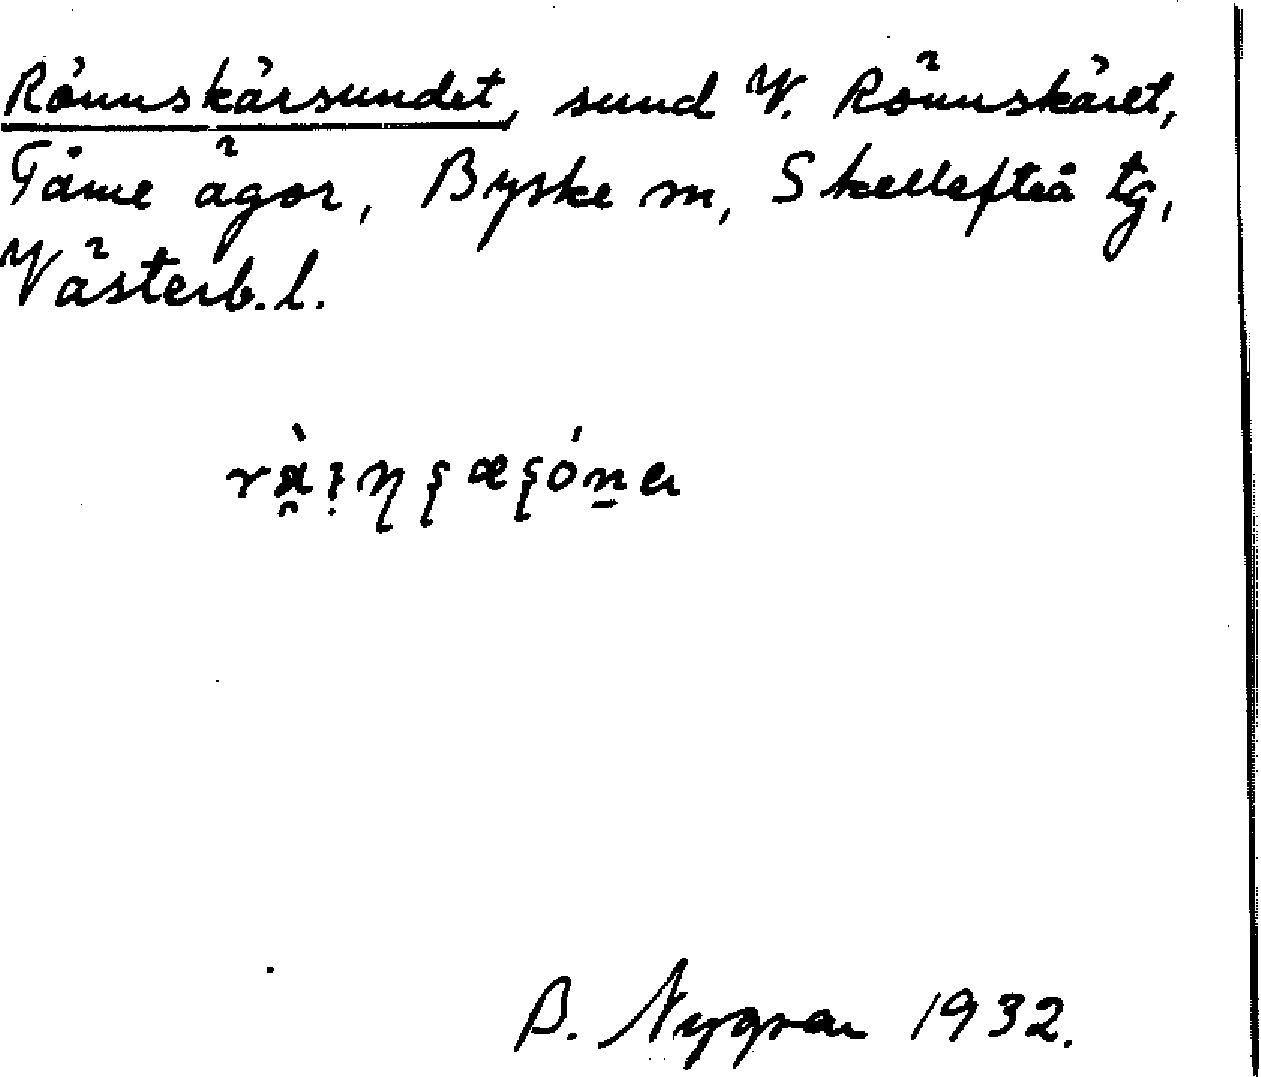 Rönnskärsundet, sund V. Rönnskäret,
Tåme ägor, Byske sn, Skellefteå tg,
Västerb. l.
B. Nygren 1932.